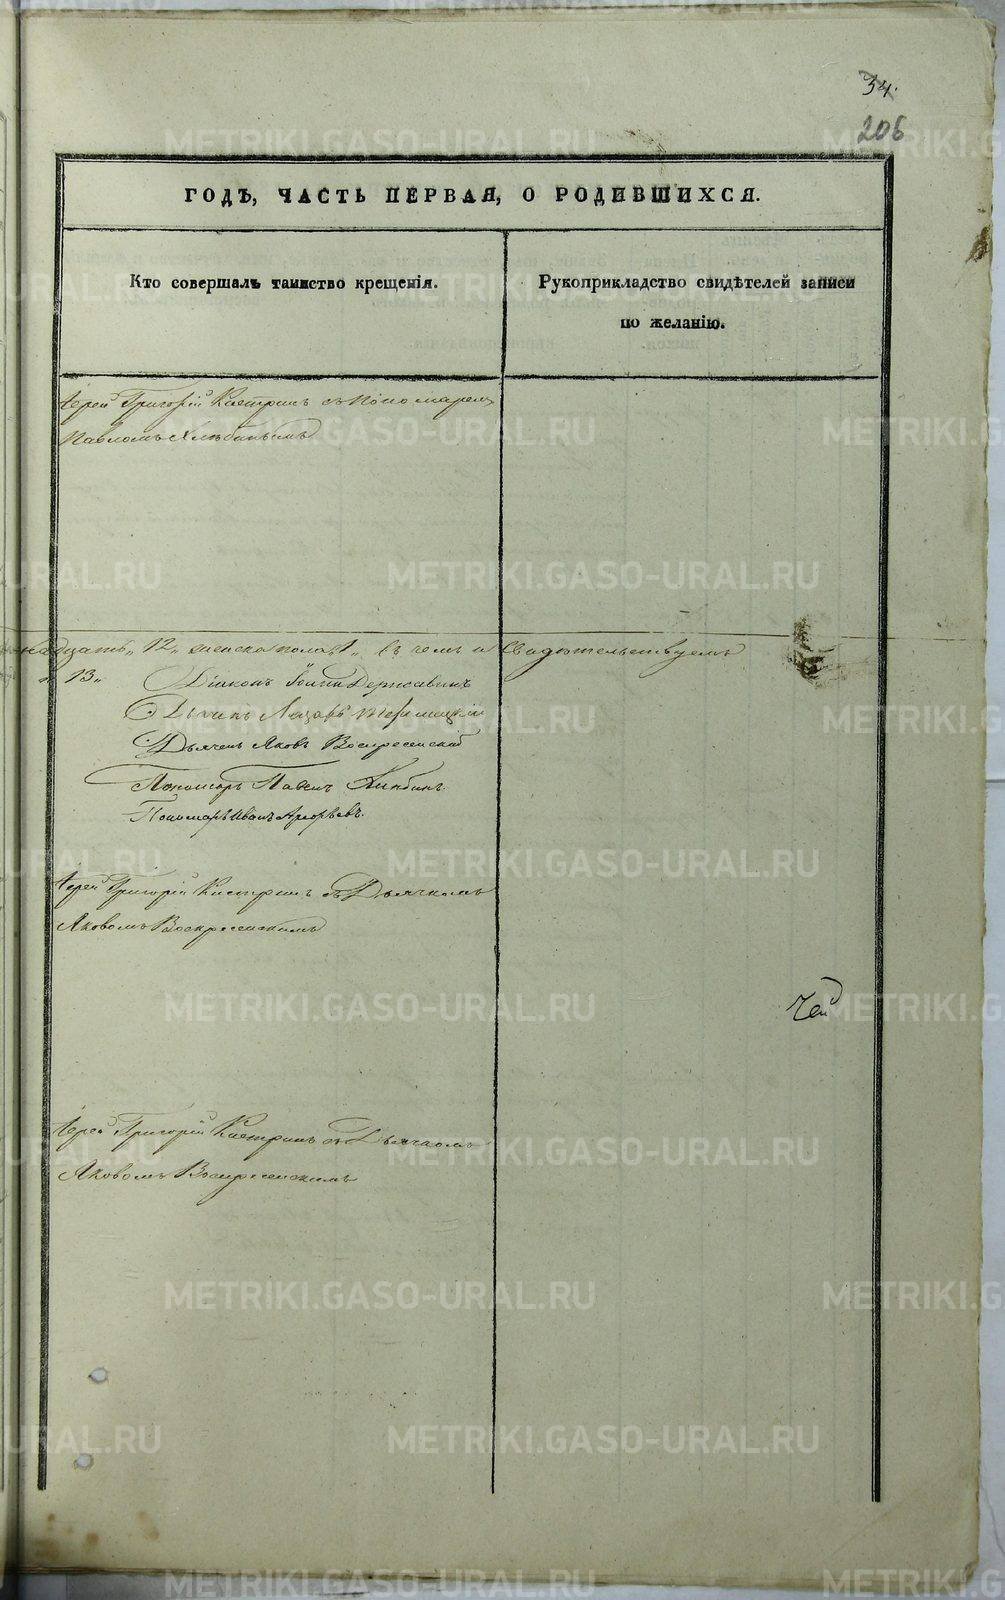 34.
206
ГОДЪ, ЧАСТЬ ПЕРВАЯ, О РОДИВШИХСЯ.
Кто совершалъ таинство крещенія.
Рукоприкладство свидѣтелей записи
по желанію.
Іерей Григорій Кастринъ съ Пономаремъ
Павломъ Хлѣбинымъ
надцать, 12, женска пола 1, въ чемъ и Свидѣтельствуемъ
13
Діаконъ Іоаннъ Державинъ
Дьячекъ Лазарь
Дьячекъ Яковъ Воскресенскій
Пономарь Павелъ Хлѣбинъ
Пономарь Иванъ
Іерей Григорій Кастринъ съ Дьячкомъ
Яковомъ Воскресенскимъ
Чей
Іерей Григорій Кастринъ съ Дьячкомъ
Яковомъ Воскресенскимъ
METRIKI.GASO-URAL.RU